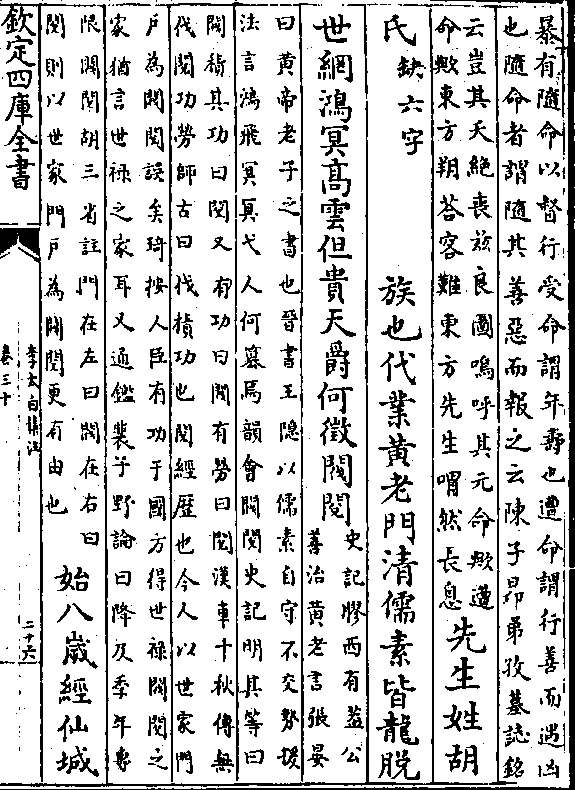 暴有隨命以督行受命謂年壽也遭命謂行善而遇凶
也隨命者謂隨其善惡而報之云陳子昂弟孜墓誌銘
云豈其天絶喪茲良圖嗚呼其元命歟遭
命歟東方朔荅客難東方先生喟然長息
先生姓胡
氏缺六字族也代業黃老門清儒素皆龍脫
世網鴻冥高雲但貴天爵何徵閥閱
史記膠西有葢公
善治黃老言張晏
曰黃帝老子之書也晉書王隱以儒素自守不交勢援
法言鴻飛冥冥弋人何慕焉韻會閥閱史記明其等曰
閥積其功曰閱又有功曰閥有勞曰閱漢車千秋傳無
伐閱功勞師古曰伐積功也閱經歷也今人以世家門
戶為閥閱誤矣琦按人臣有功于國方得世祿閥閱之
家猶言世祿之家耳又通鑑裴子野論曰降及季年專
限閥閱胡三省註門在左曰閥在右曰
閱則以世家門戶為閥閱更有由也
始八歲經仙城
欽定四庫全書
李太白集注
卷三十
二十六